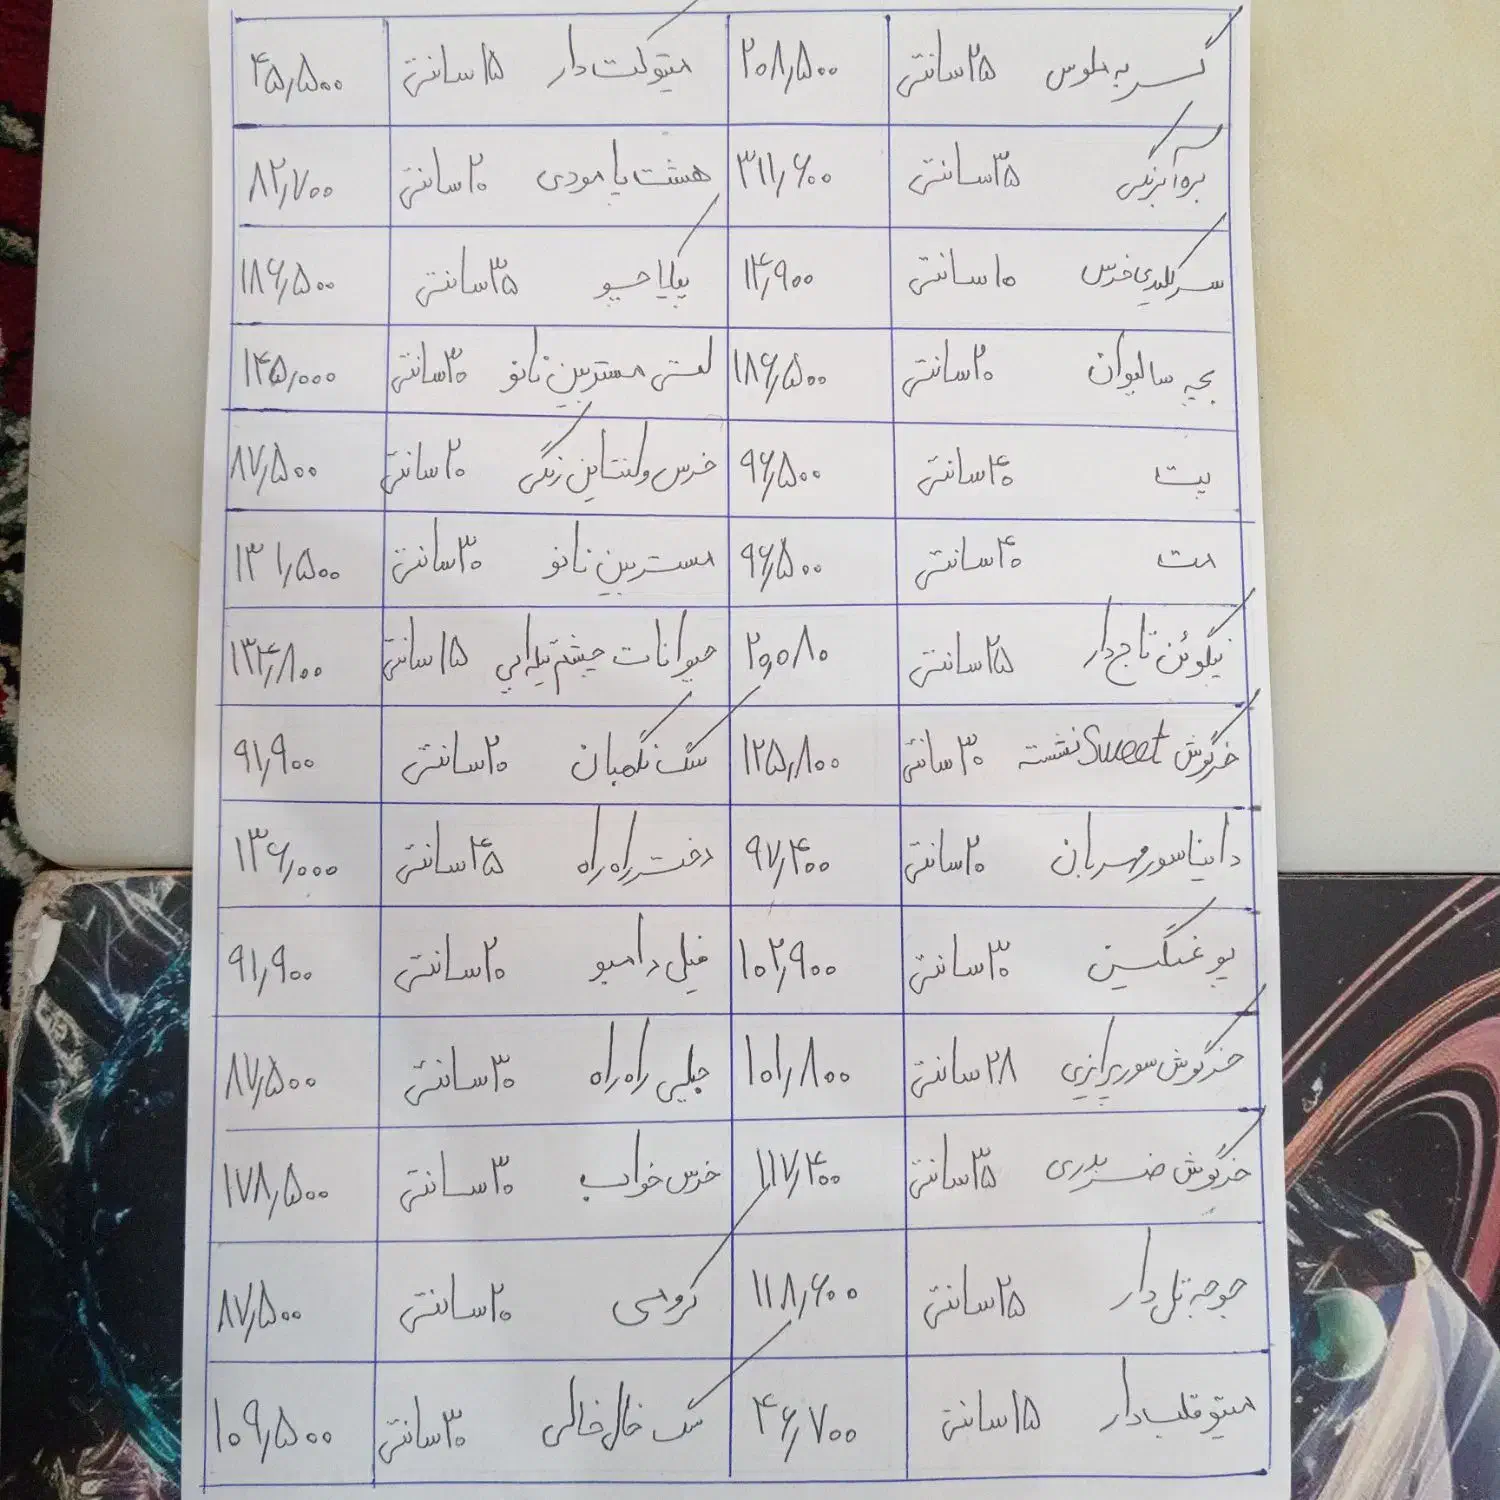 گربه ملوس ۲۵ سانتی ۲۰۸٫۵۰۰ میتو کت دار ۱۵ سانتی ۴۵٫۵۰۰
بره آبرنگی ۳۵ سانتی ۳۱۱٫۶۰۰ هشت پا مودی ۲۰ سانتی ۸۲٫۷۰۰
سرکلیدی خرس ۱۰ سانتی ۱۴٫۹۰۰ پاپا جیبو ۳۵ سانتی ۱۸۶٫۵۰۰
بچه سالیوان ۲۰ سانتی ۱۸۶٫۵۰۰ مستربین نانو ۳۰ سانتی ۱۴۵٫۰۰۰
پت ۴۰ سانتی ۹۶٫۵۰۰ خرس ولنتاین رنگی ۲۰ سانتی ۸۷٫۵۰۰
مت ۴۰ سانتی ۹۶٫۵۰۰ مستربین نانو ۳۰ سانتی ۱۳۱٫۵۰۰
پنگوئن تاج دار ۲۵ سانتی حیوانات چشم تیله ایی ۱۵ سانتی ۱۳۴٫۸۰۰
خرگوش Sweet نشسته ۳۰ سانتی ۱۲۵٫۸۰۰ سگ نگهبان ۲۰ سانتی ۹۱٫۹۰۰
دایناسور مهربان ۲۰ سانتی ۹۷٫۴۰۰ دخت راه راه ۴۵ سانتی ۱۳۶٫۰۰۰
پو غمگین ۳۰ سانتی ۱۰۲٫۹۰۰ فیل دامبو ۲۰ سانتی ۹۱٫۹۰۰
خرگوش سورپرایزی ۲۸ سانتی ۱۰۱٫۸۰۰ جیلی راه راه ۳۰ سانتی ۸۷٫۵۰۰
خرگوش ضربدری ۳۵ سانتی ۱۱۷٫۴۰۰ خرس خواب ۳۰ سانتی ۱۷۸٫۵۰۰
جوجه تل دار ۲۵ سانتی ۱۱۸٫۶۰۰ کرومی ۲۰ سانتی ۸۷٫۵۰۰
میتو قلب دار ۱۵ سانتی ۴۶٫۷۰۰ سگ خال خالی ۳۰ سانتی ۱۰۹٫۵۰۰